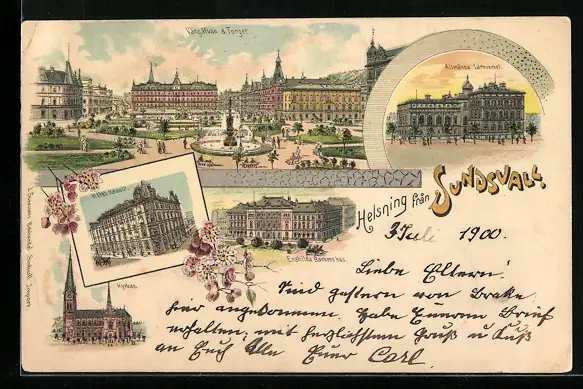 Vängåfvan & Torget.
Allmänna Läroverket.
Hôtel Knaust.
Helsning från
SUNDSVALL.
Enskilda Bankens hus.
Kyrkan.
3 Juli 1900.
Liebe Eltern!
Sind gestern von Brake
hier angekommen. Habe Eueren Brief
erhalten, mit herzlichstem Gruß u Kuß
an Euch Alle Euer Carl.